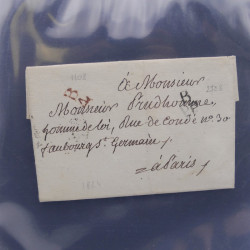 à Monsieur
Monsieur Prudhomme
homme de loi, Rue de Condé n.° 30
faubourg S.t Germain,
= à Paris,
B
B